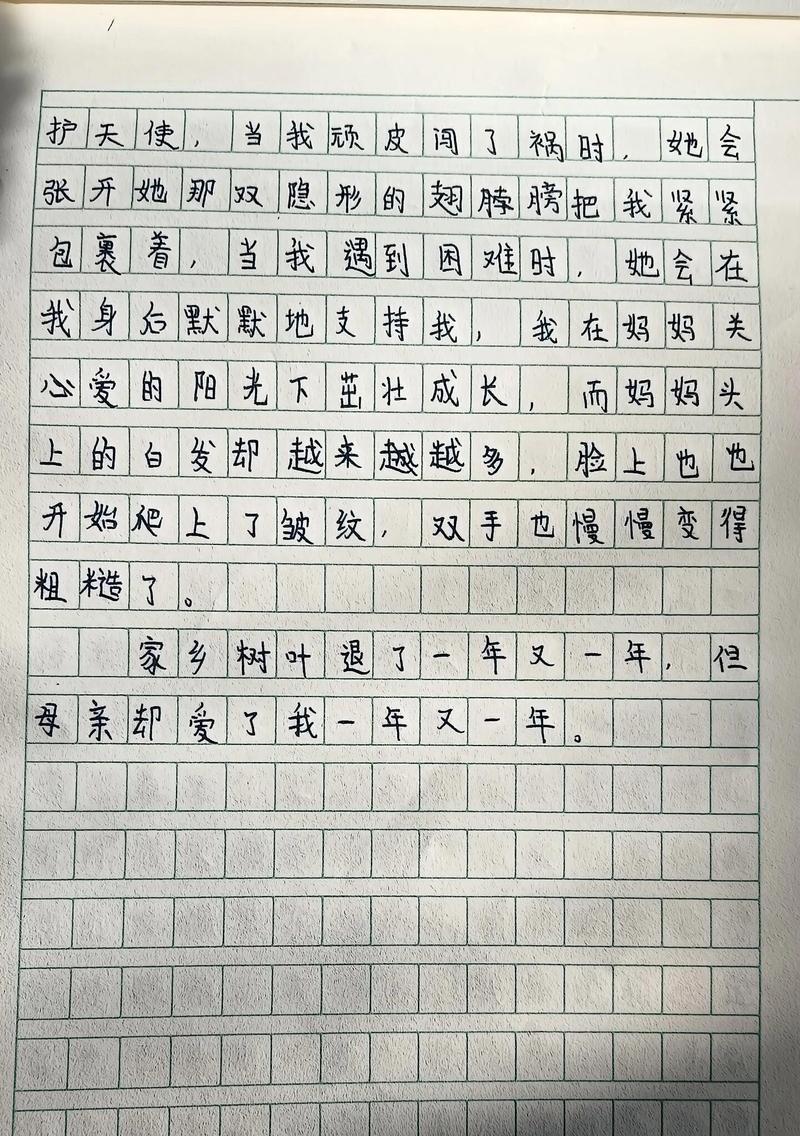 护天使，当我顽皮闯了祸时，她会
张开她那双隐形的翅脖膀把我紧紧
包裹着，当我遇到困难时，她会在
我身后默默地支持我，我在妈妈关
心爱的阳光下茁壮成长，而妈妈头
上的白发却越来越越多，脸上也也
开始爬上了皱纹，双手也慢慢变得
粗糙了。
家乡树叶退了一年又一年，但
母亲却爱了我一年又一年。